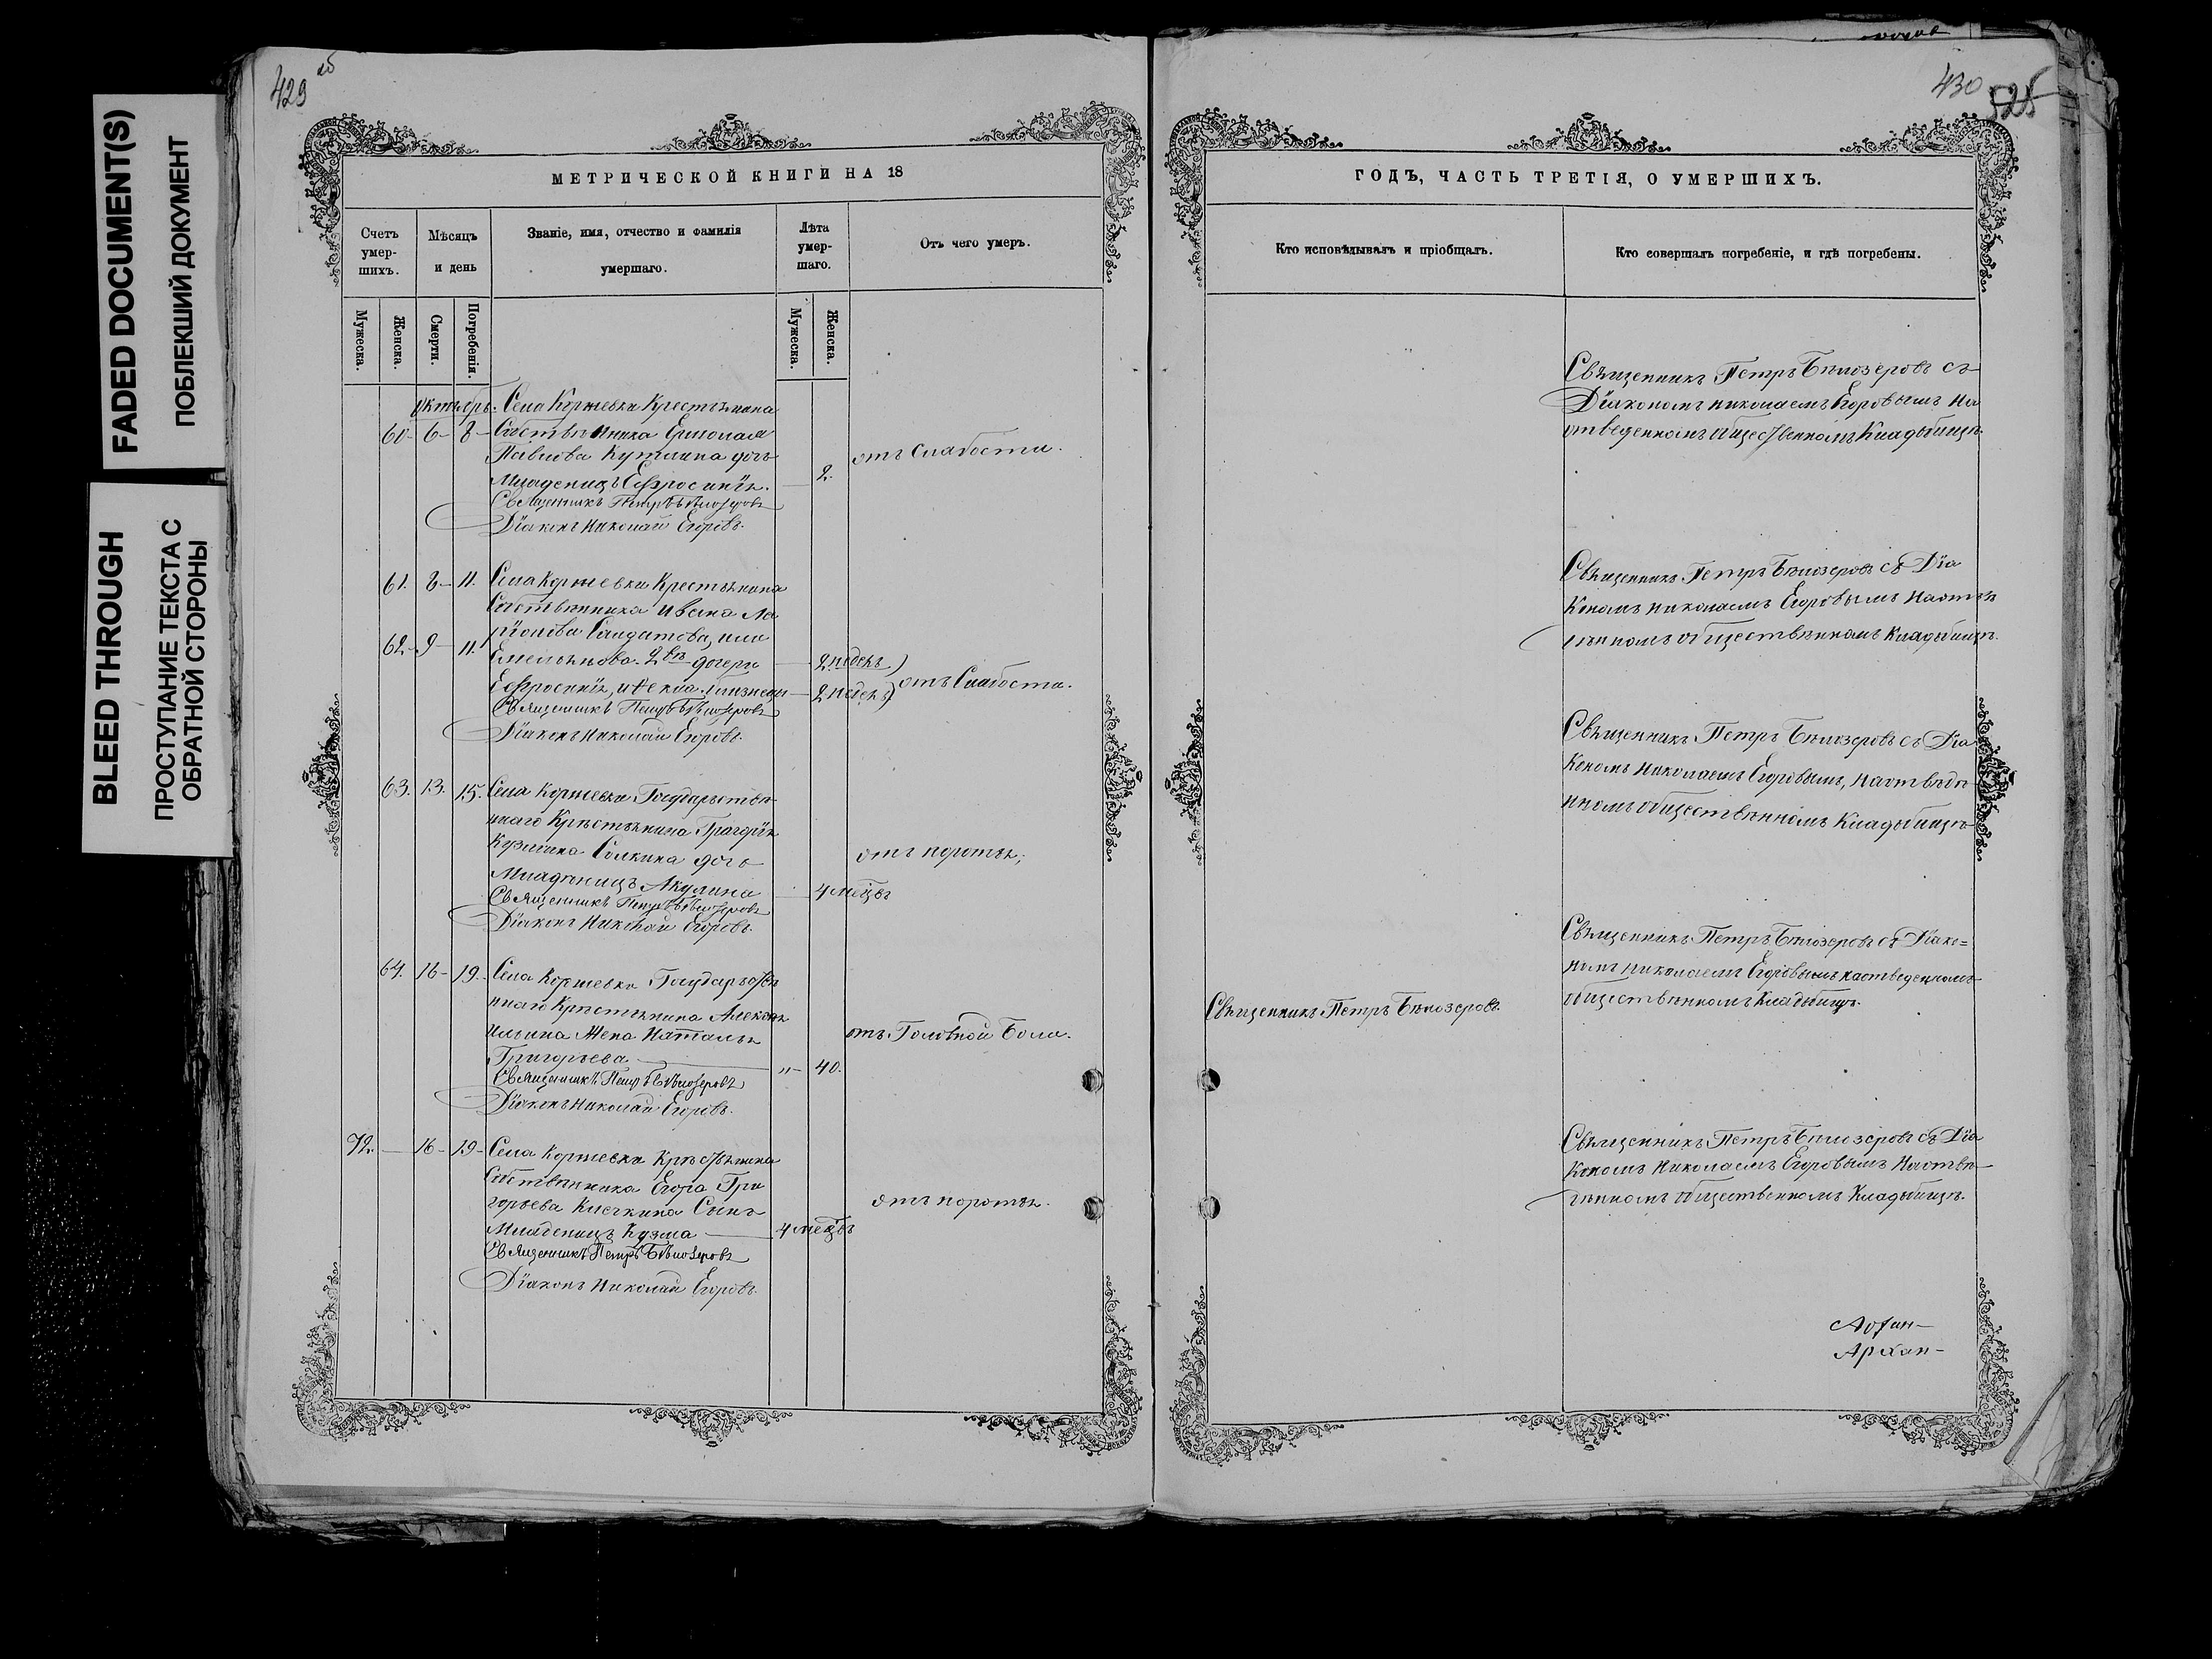 FADED DOCUMENT(S)
ПОБЛЕКШИЙ ДОКУМЕНТ
BLEED THROUGH
ПРОСТУПАНИЕ ТЕКСТА С
ОБРАТНОЙ СТОРОНЫ
429 об
МЕТРИЧЕСКОЙ КНИГИ НА 18
Счетъ умер-шихъ.
Мѣсяцъ и день
Званіе, имя, отчество и фамилія умершаго.
Лѣта умер-шаго.
Отъ чего умеръ.
Мужеска.
Женска.
Смерти.
Погребенія.
Мужеска.
Женска.
Октябрь. Села Коржевки Крестьянина
60 6 8 Собственника
Павлова дочь
Младенецъ Ефросинія. 2. отъ Слабости.
Священникъ Петръ Бѣлозеровъ
Діаконъ Николай Егоровъ.
61. 8 11. Села Коржевки Крестьянина
Собственника Ивана Ла
ріонова Солдатова, или
62 9 11. Емельянова 2вѣ дочери 2 недѣлъ
Ефросинія, и Ѳекла близнецы 2 недѣлъ отъ Слабости.
Священникъ Петръ Бѣлозеровъ
Діаконъ Николай Егоровъ.
63. 13. 15. Села Коржевки Государстве
ннаго Крестьянина Григорія
Кузмина дочь отъ поротъя;
Младенецъ Акулина 4 мецъ
Священникъ Петръ Бѣлозеровъ
Діаконъ Николай Егоровъ.
64. 16 19. Села Коржевки Государстве
ннаго Крестьянина Алексѣя
Ильина Жена Наталья отъ Головной Боли.
Григорьева 40.
Священникъ Петръ Бѣлозеровъ
Діаконъ Николай Егоровъ.
72. 16 19 Села Коржевки Крестьянина
Собственника Егора Гри
горьева Клечкина Сынъ отъ поротъя.
Младенецъ Кузма 4 мецъ
Священникъ Петръ Бѣлозеровъ
Діаконъ Николай Егоровъ.
430
525
ГОДЪ, ЧАСТЬ ТРЕТІЯ, О УМЕРШИХЪ.
Кто исповѣдывалъ и пріобщалъ.
Кто совершалъ погребеніе, и гдѣ погребены.
Священникъ Петръ Бѣлозеровъ съ
Діакономъ Николаемъ Егоровымъ на
отведенномъ общественномъ Кладбищѣ.
Священникъ Петръ Бѣлозеровъ съ Діа
кономъ Николаемъ Егоровымъ на отве
денномъ общественномъ кладбищѣ.
Священникъ Петръ Бѣлозеровъ съ Діа
кономъ Николаемъ Егоровымъ, на отведе
нномъ общественномъ Кладбищѣ
Священникъ Петръ Бѣлозеровъ съ Діако=
номъ Николаемъ Егоровымъ на отведенномъ
общественномъ Кладбищѣ.
Священникъ Петръ Бѣлозеровъ.
Священникъ Петръ Бѣлозеровъ съ Діа
кономъ Николаемъ Егоровымъ на отве
денномъ общественномъ Кладбищѣ.
Архан-